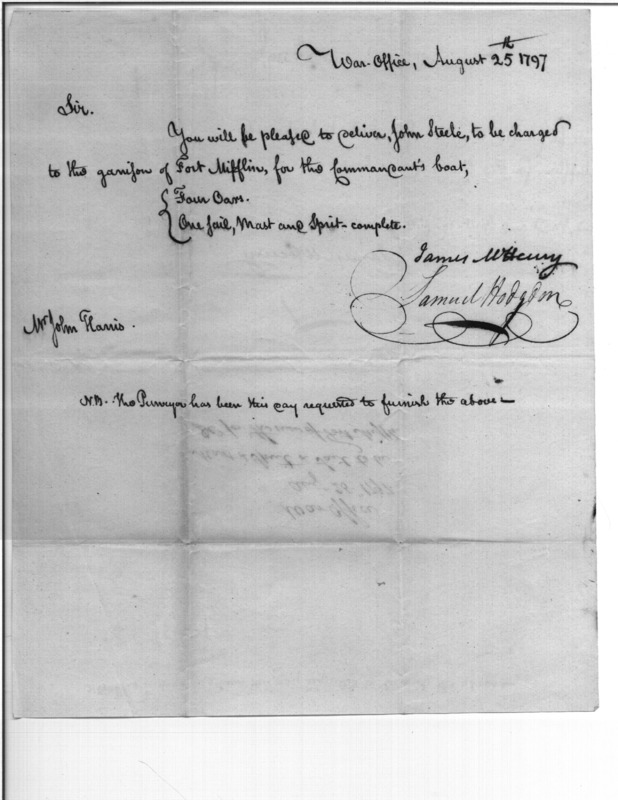 War-Office, August 25th 1797
Sir.
You will be pleased to deliver, John Steele, to be charged
to the garrison of Fort Mifflin, for the Commandant's boat,
Four Oars.
One Sail, Mast and Sprit-complete.
James McHenry
Samuel Hodgdon
Mr John Harris.
N.B. The Purveyor has been this day requested to furnish the above—